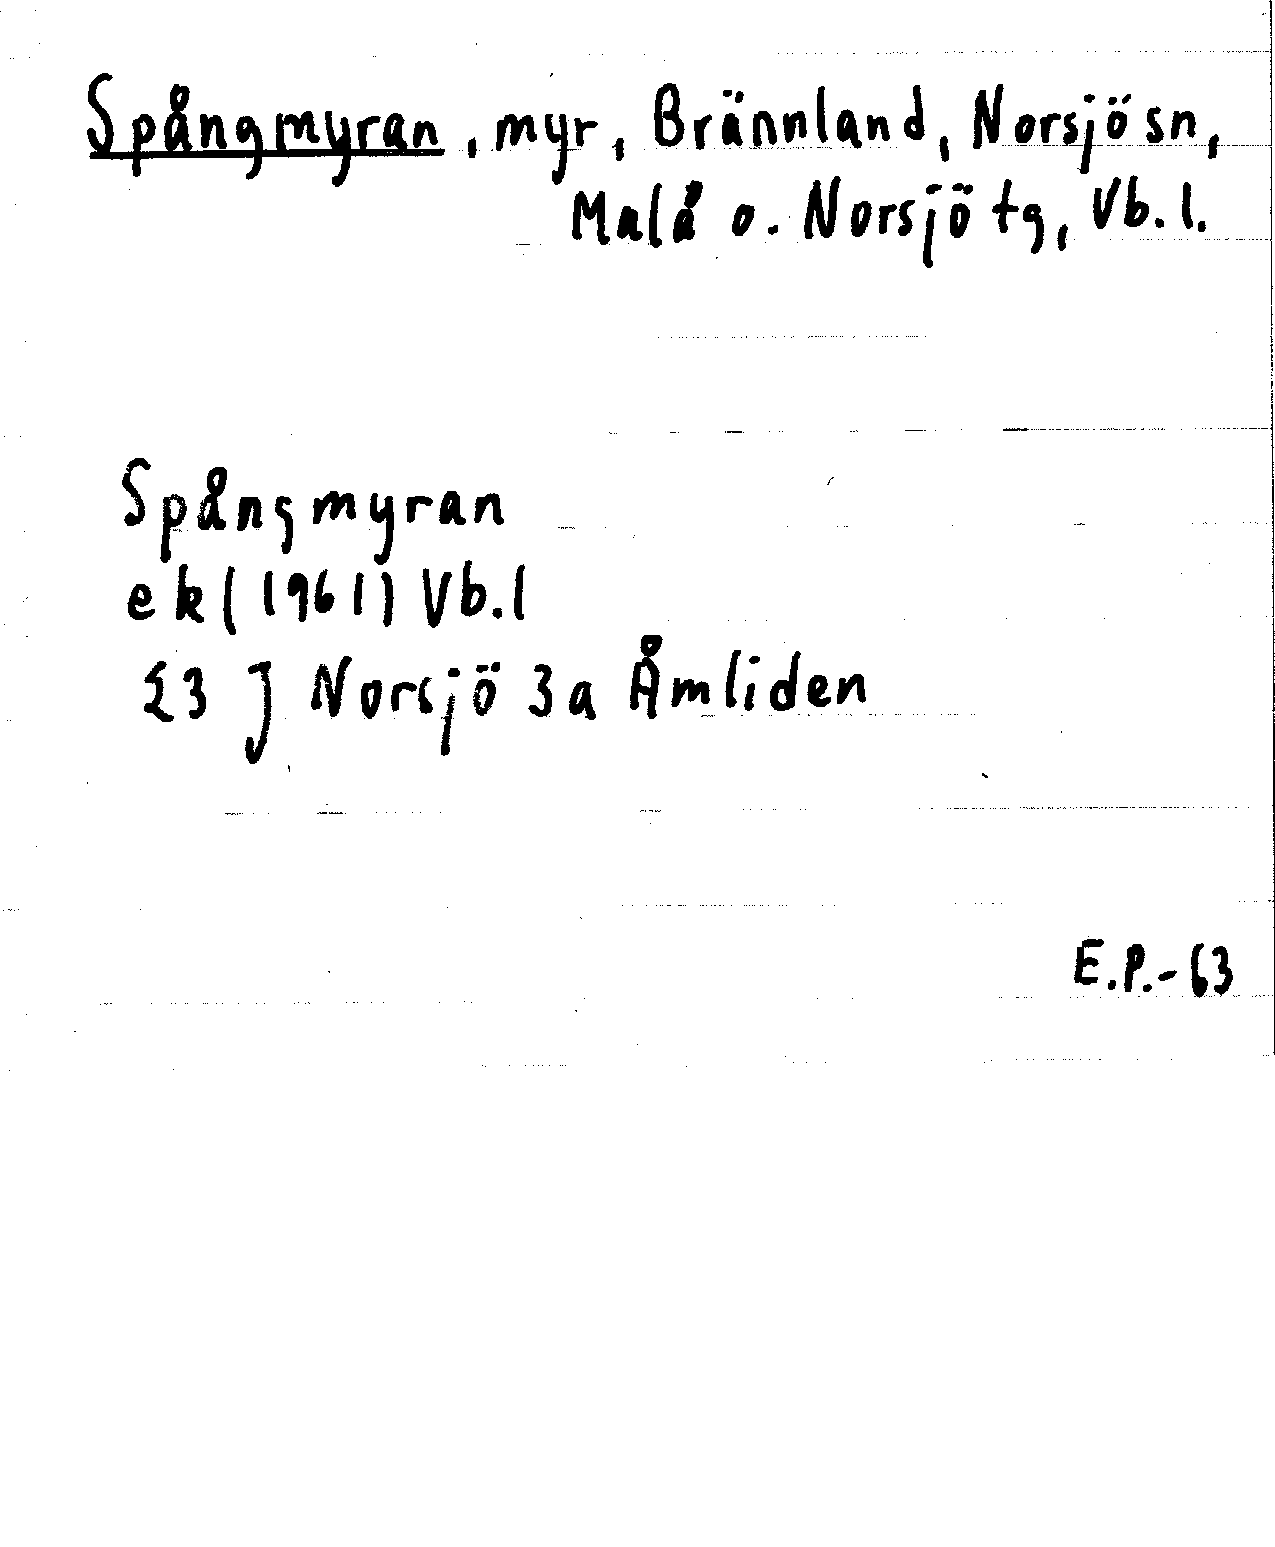 Spångmyran, myr, Brännland, Norsjö sn,
Malå o. Norsjö tg, Vb. l.
Spångmyran
ek (1961) Vb. l
23 J Norsjö 3a Åmliden
E.P.-63